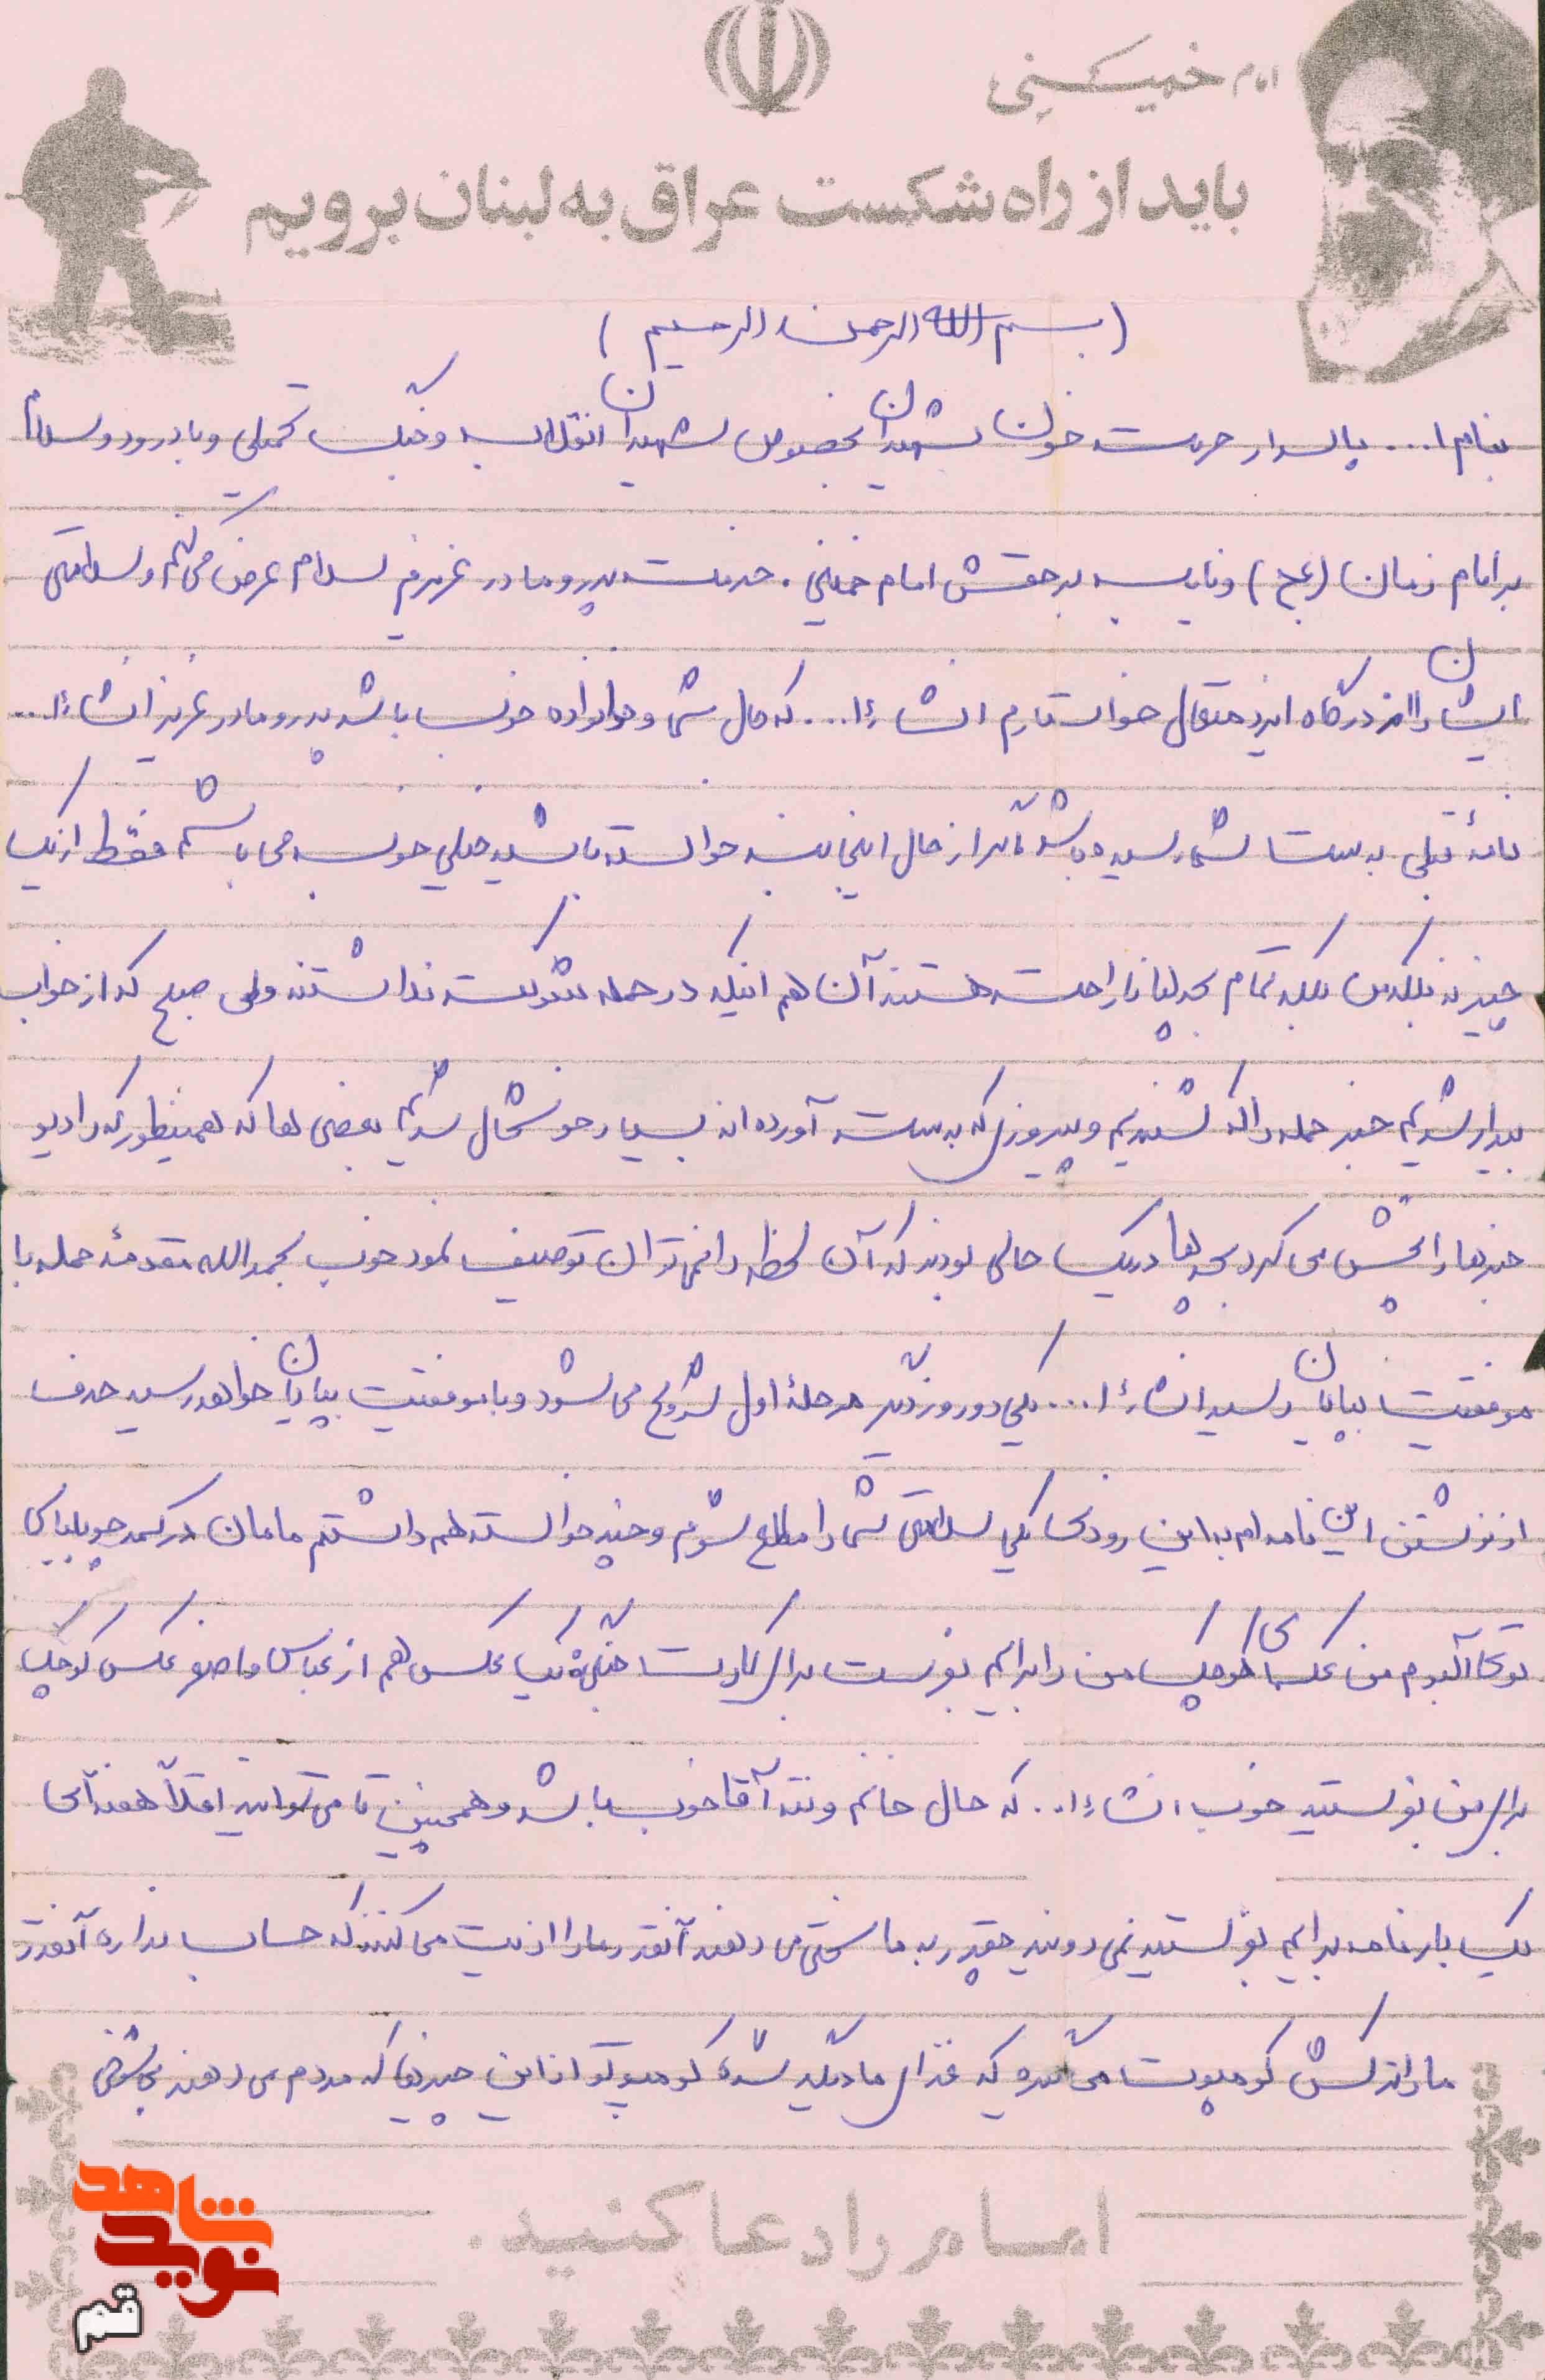 امام خمینی
باید از راه شکست عراق به لبنان برویم
(بسم الله الرحمن الرحیم)
بنام ا... پاسدار حرمت خون شهیدان بخصوص شهیدان انقلاب و جنگ تحمیلی و با درود و سلام
بر امام زمان (عج) و نایب بر حقش امام خمینی. خدمت پدر و مادر عزیزم سلام عرض می کنم و سلامتی
ایشان را از درگاه ایزد متعال خواستارم انشاءا... که حال شما و خانواده خوب باشد پدر و مادر عزیز انشاءا...
نامهٔ قبلی بدست شما رسیده باشد اگر از حال اینجانب خواسته باشید خیلی خوب می باشم فقط از یک
چیز نه بلکه من بلکه تمام بچه ها ناراحت هستند آن هم اینکه در حمله شرکت نداشتند ولی صبح که از خواب
بیدار شدیم خبر حمله را که شنیدیم و پیروزی که بدست آورده اند بسیار خوشحال شدیم بعضی ها که همینطور که رادیو
خبرها را پخش می کرد بچه ها در یک حالی بودند که آن لحظه را نمی توان توصیف نمود خوب بحمدالله مقدمهٔ حمله با
موفقیت بپایان رسید انشاءا... یکی دو روز دیگر مرحلهٔ اول شروع می شود و با موفقیت بپایان خواهد رسید هدف
از نوشتن این نامه ام به این زودی یکی سلامتی شما را مطلع شوم و چند خواسته هم داشتم مامان در کمد
توی آلبوم من عکسهای کوچک من را برایم بفرست برای کارت جنگی و یک عکس هم از عباس و اصغر عکس کوچک
برای من بفرستید خوب انشاءا... که حال خانم و ننه آقا خوب باشد و همچنین تا می توانید اقلاً هفته ای
یک بار نامه برایم بفرستید نمی دونید چقدر به ما سختی می دهند آنقدر ما را اذیت می کنند که حساب نداره آنقدر
ما را کمپوت می که غذای ما دیگه شده کمپوت و از این چیزها که مردم می دهند
امام را دعا کنید.
شاهد
نوید
قم